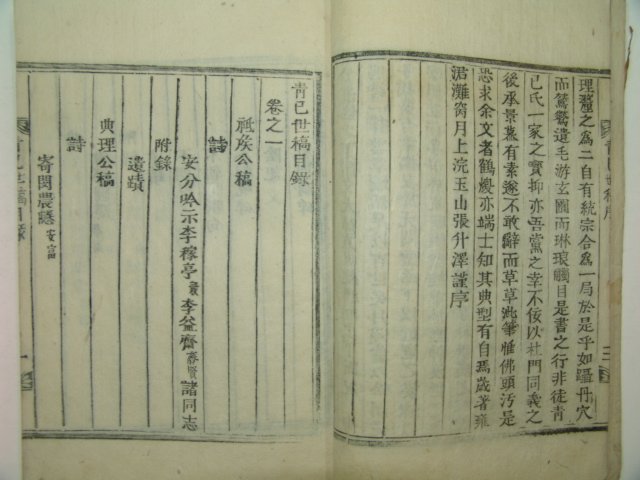 理灋之為二自有統宗合為一局於是乎如躡丹穴
而鸑鷟遺毛游玄圃而琳琅觸目是書之行非徒青
已氏一家之寶抑亦吾黨之幸不佞以杜門同義之
後承景慕有素遂不敢辭而草草泚筆惟佛頭汚是
恐求余文者鶴慶亦端士知其典型有自焉歲著雍
涒灘窝月上浣玉山張升澤謹序
青已世稿目錄
卷之一
祗侯公稿
詩
安分吟示李稼亭穀李益齋齊賢諸同志
附錄
遺蹟
典理公稿
詩
寄閔農隱安富